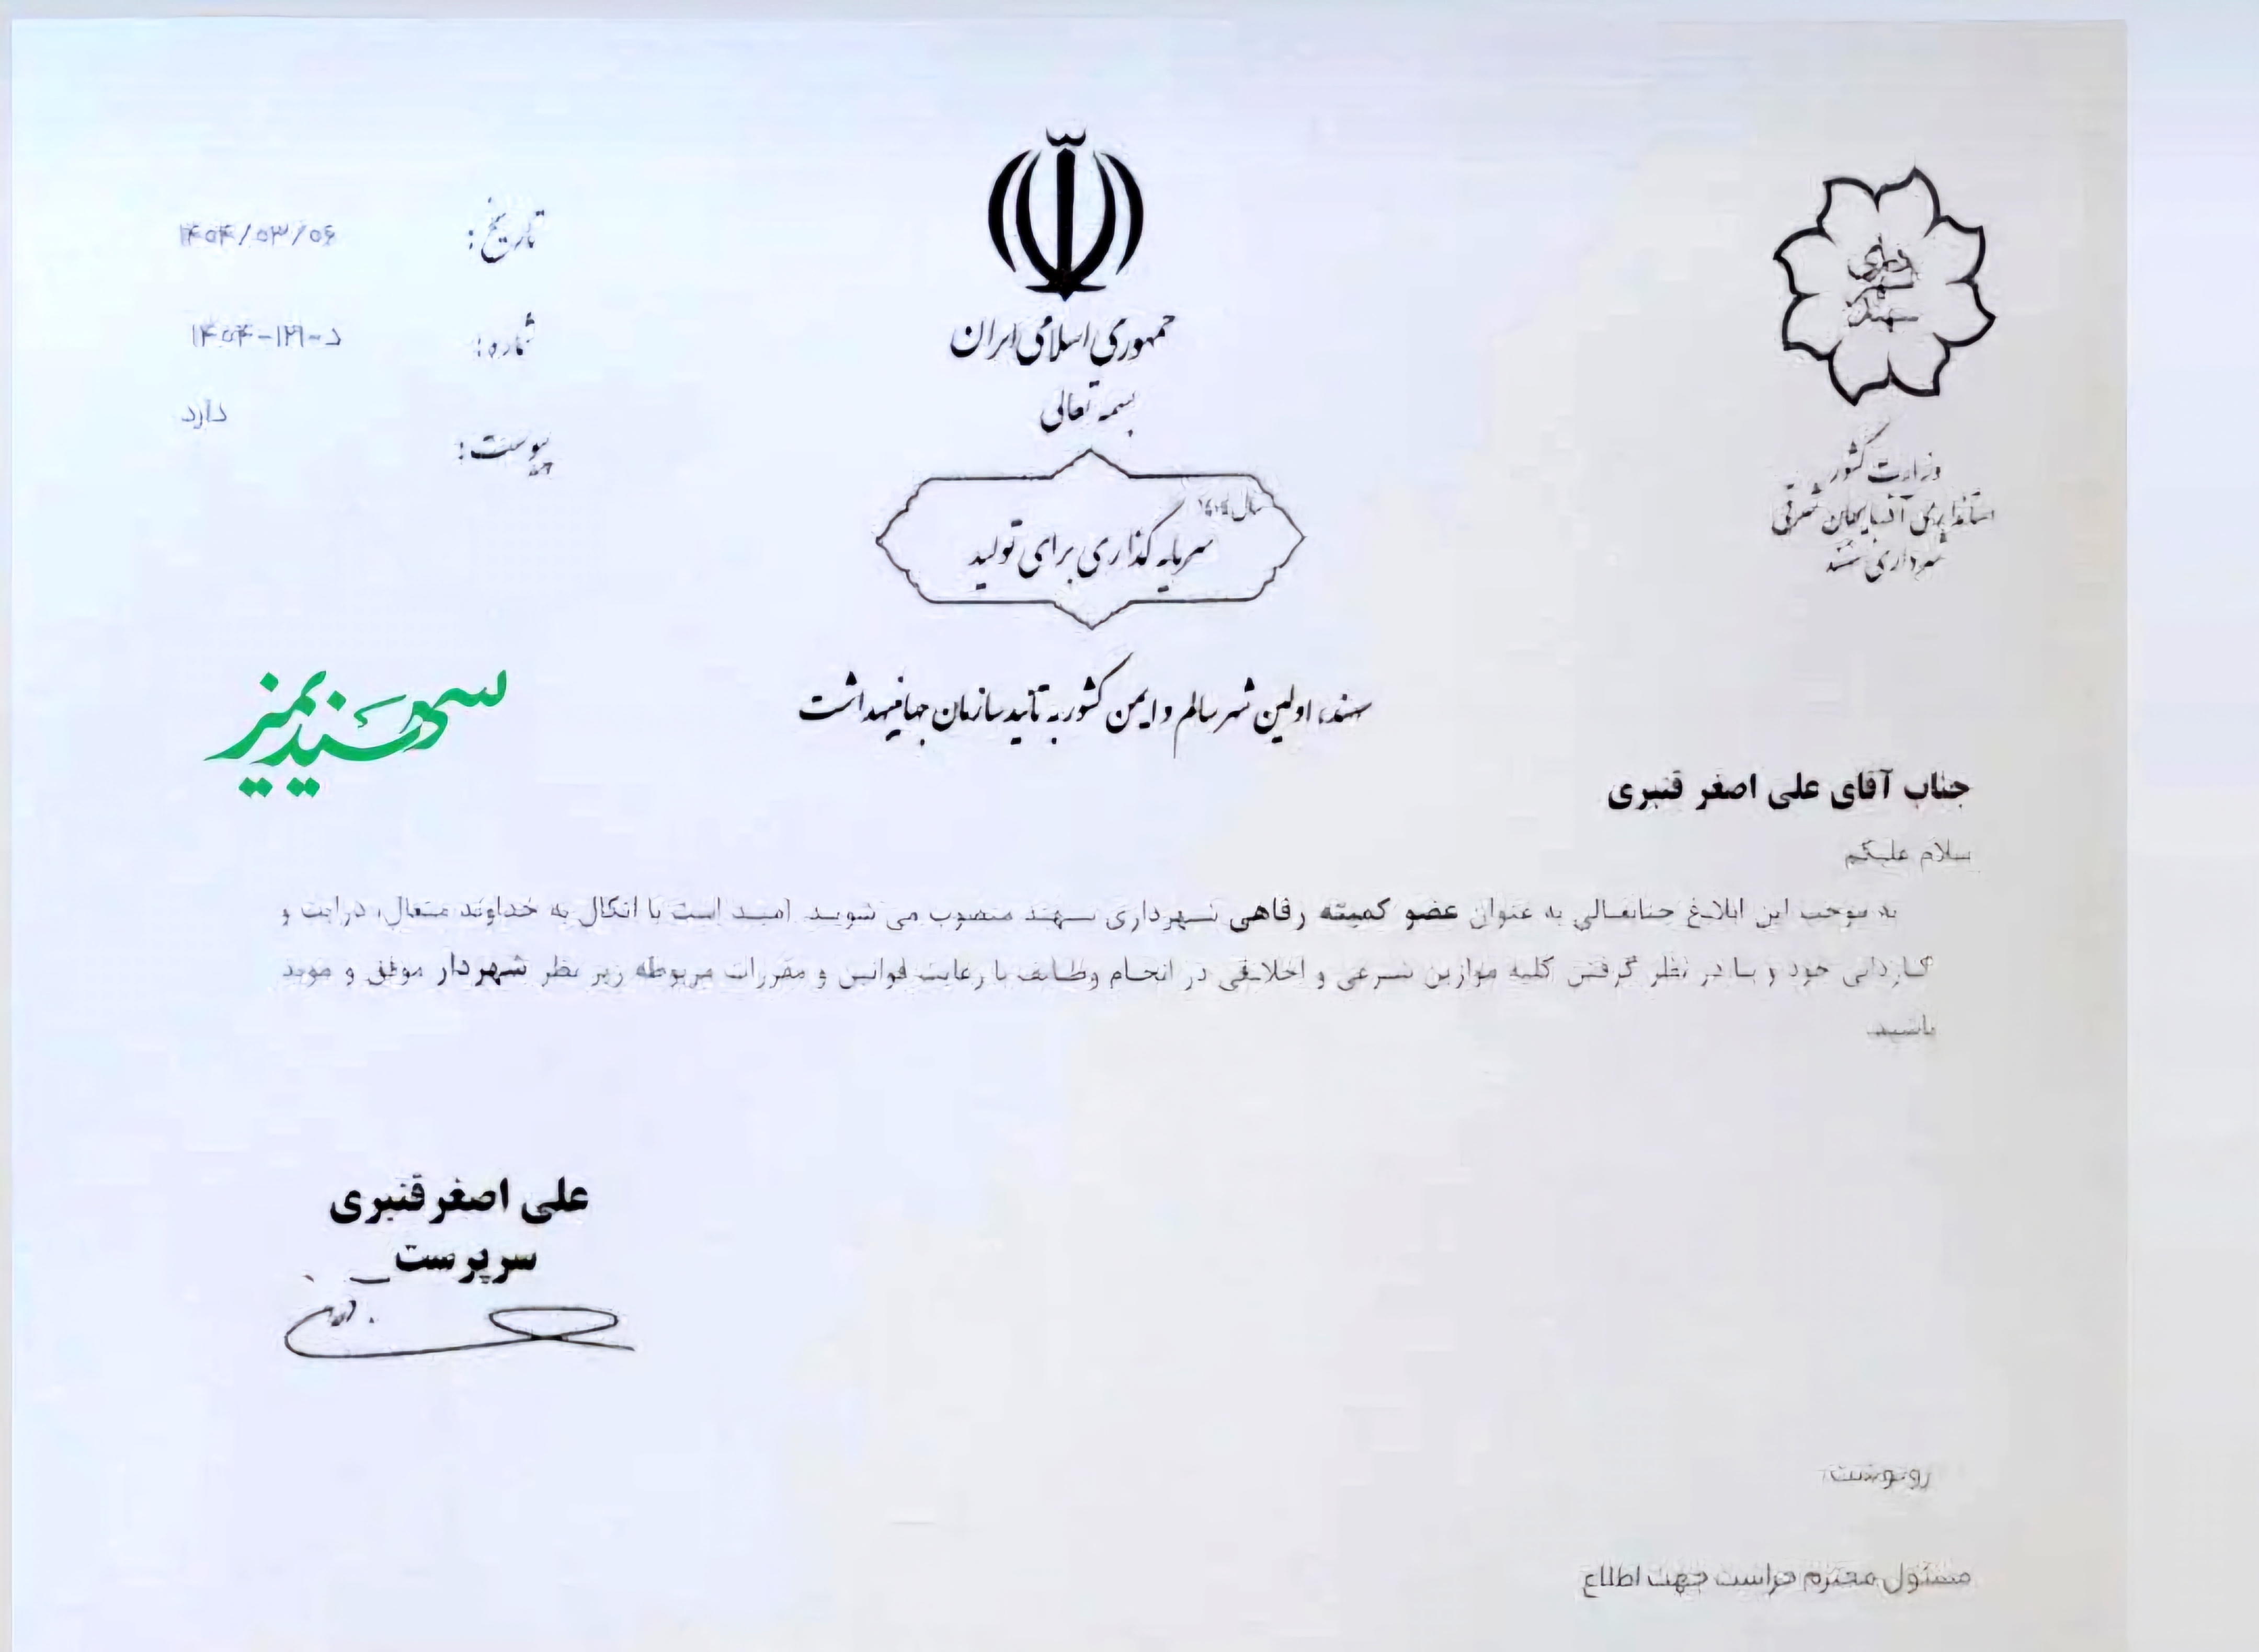 تاریخ: ۱۴۰۴/۰۳/۰۶
شماره: د-۱۲۹-۱۴۰۴
پیوست: دارد
جمهوری اسلامی ایران
بسمه تعالی
سال ۱۴۰۴
سرمایه گذاری برای تولید
شهرداری سهند
وزارت کشور
استانداری آذربایجان شرقی
شهرداری سهند
سهند، اولین شهر سالم و ایمن کشور به تائید سازمان جهانی بهداشت
سهندیمیز
جناب آقای علی اصغر قنبری
سلام علیکم
به موجب این ابلاغ جنابعالی به عنوان عضو کمیته رفاهی شهرداری سهند منصوب می شوید. امید است با اتکال به خداوند متعال، درایت و
کاردانی خود و با در نظر گرفتن کلیه موازین شرعی و اخلاقی در انجام وظایف با رعایت قوانین و مقررات مربوطه زیر نظر شهردار موفق و موید
باشید.
علی اصغر قنبری
سرپرست
رونوشت:
مسئول محترم حراست جهت اطلاع